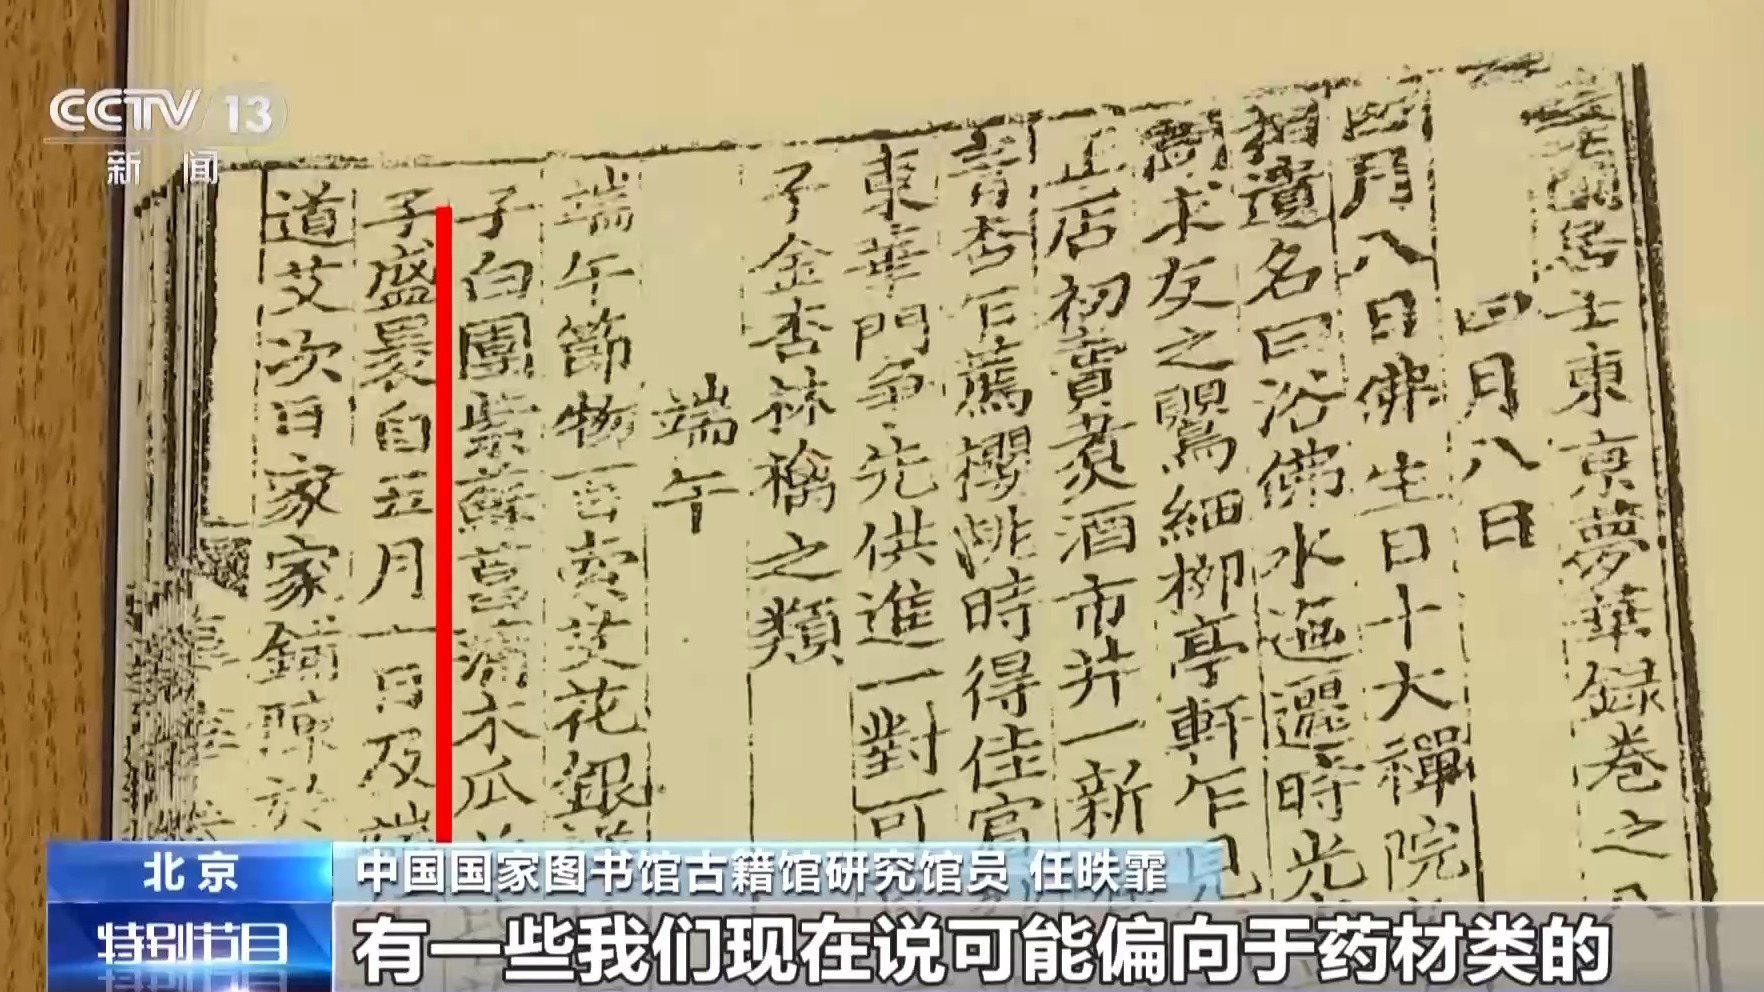 CCTV 13
新闻
居士東京夢華録卷之
四月八日
四月八日佛生日十大禪院
遺名曰浴佛水遍邏時光
求友之鸎細柳亭軒乍見
正店初賣煮酒市井一新
青杏乍薦櫻桃時得佳賓
東華門争先供進一對可
子金杏林檎之類
端午
端午節物百索艾花銀
子白團紫蘇菖蒲木瓜
子盛裹自五月一日及端
道艾次日家家鋪陳於
北京
中国国家图书馆古籍馆研究馆员 任昳霏
特别节目
有一些我们现在说可能偏向于药材类的